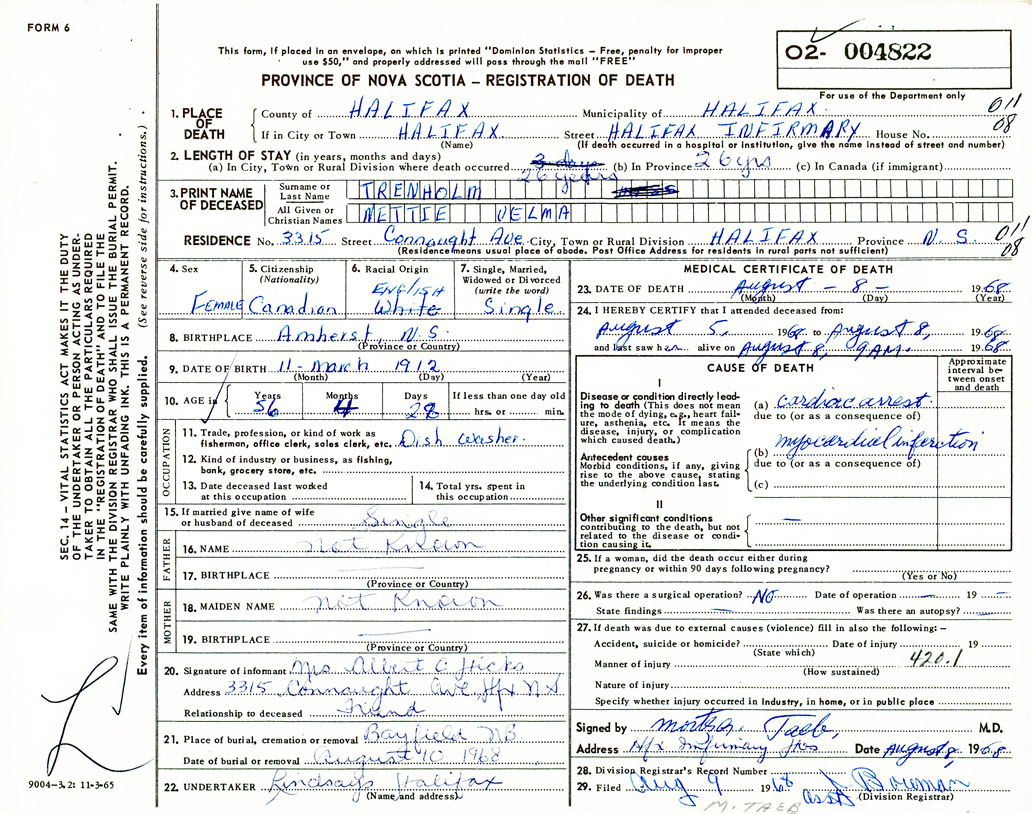 FORM 6
O2- 004822
This form, if placed in an envelope, on which is printed "Dominion Statistics – Free, penalty for improper
use $50," and properly addressed will pass through the mail "FREE"
PROVINCE OF NOVA SCOTIA – REGISTRATION OF DEATH
For use of the Department only
1. PLACE OF DEATH County of HALIFAX Municipality of HALIFAX. 011
08
If in City or Town HALIFAX Street HALIFAX INFIRMARY House No.
(Name) (If death occurred in a hospital or institution, give the name instead of street and number)
2. LENGTH OF STAY (in years, months and days)
(a) In City, Town or Rural Division where death occurred 3 days (b) In Province 26 yrs (c) In Canada (if immigrant)
26 years
3. PRINT NAME OF DECEASED Surname or Last Name TRENHOLM
All Given or Christian Names NETTIE VELMA
RESIDENCE No. 3315 Street Connaught Ave City, Town or Rural Division HALIFAX Province N. S. 011
08
(Residence means usual place of abode. Post Office Address for residents in rural parts not sufficient)
4. Sex Female
5. Citizenship (Nationality) Canadian
6. Racial Origin ENGLISH White
7. Single, Married, Widowed or Divorced (write the word) Single
8. BIRTHPLACE Amherst, N.S.
(Province or Country)
9. DATE OF BIRTH 11 - March 1912
(Month) (Day) (Year)
10. AGE in Years 56 Months 4 Days 28 If less than one day old hrs. or min.
OCCUPATION
11. Trade, profession, or kind of work as fisherman, office clerk, sales clerk, etc. Dish washer.
12. Kind of industry or business, as fishing, bank, grocery store, etc.
13. Date deceased last worked at this occupation
14. Total yrs. spent in this occupation
15. If married give name of wife or husband of deceased Single
FATHER
16. NAME Not Known
17. BIRTHPLACE
(Province or Country)
MOTHER
18. MAIDEN NAME Not Known
19. BIRTHPLACE
(Province or Country)
20. Signature of informant Mrs Albert C Hicks
Address 3315 Connaught Ave, Hfx N.S
Relationship to deceased Friend
21. Place of burial, cremation or removal Bayfield N.B.
Date of burial or removal August 10 1968
22. UNDERTAKER Lindsays Halifax
(Name and address)
MEDICAL CERTIFICATE OF DEATH
23. DATE OF DEATH August - 8 - 1968
(Month) (Day) (Year)
24. I HEREBY CERTIFY that I attended deceased from:
August 5, 1968 to August 8, 1968
and last saw her alive on August 8, 9 AM. 1968
CAUSE OF DEATH
Approximate interval between onset and death
I
Disease or condition directly leading to death (This does not mean the mode of dying, e.g., heart failure, asthenia, etc. It means the disease, injury, or complication which caused death.)
(a) cardiac arrest
due to (or as a consequence of)
Antecedent causes
Morbid conditions, if any, giving rise to the above cause, stating the underlying condition last.
(b) myocardial infarction
due to (or as a consequence of)
(c)
II
Other significant conditions contributing to the death, but not related to the disease or condition causing it. —
25. If a woman, did the death occur either during pregnancy or within 90 days following pregnancy?
(Yes or No)
26. Was there a surgical operation? NO Date of operation — 19 —
State findings — Was there an autopsy? —
27. If death was due to external causes (violence) fill in also the following: –
Accident, suicide or homicide? Date of injury 19
(State which)
Manner of injury 420.1
(How sustained)
Nature of injury
Specify whether injury occurred in Industry, in home, or in public place
Signed by Taeb, M.D.
Address Hfx Infirmary Date August 8, 1968
28. Division Registrar's Record Number
29. Filed Aug 9 1968 asst Bowman
(Division Registrar)
M. TAEB
SEC. 14 – VITAL STATISTICS ACT MAKES IT THE DUTY
OF THE UNDERTAKER OR PERSON ACTING AS UNDER-
TAKER TO OBTAIN ALL THE PARTICULARS REQUIRED
IN THE "REGISTRATION OF DEATH" AND TO FILE THE
SAME WITH THE DIVISION REGISTRAR WHO SHALL ISSUE THE BURIAL PERMIT.
WRITE PLAINLY WITH UNFADING INK. THIS IS A PERMANENT RECORD.
Every item of information should be carefully supplied. (See reverse side for instructions.)
9004-3.2: 11-3-65